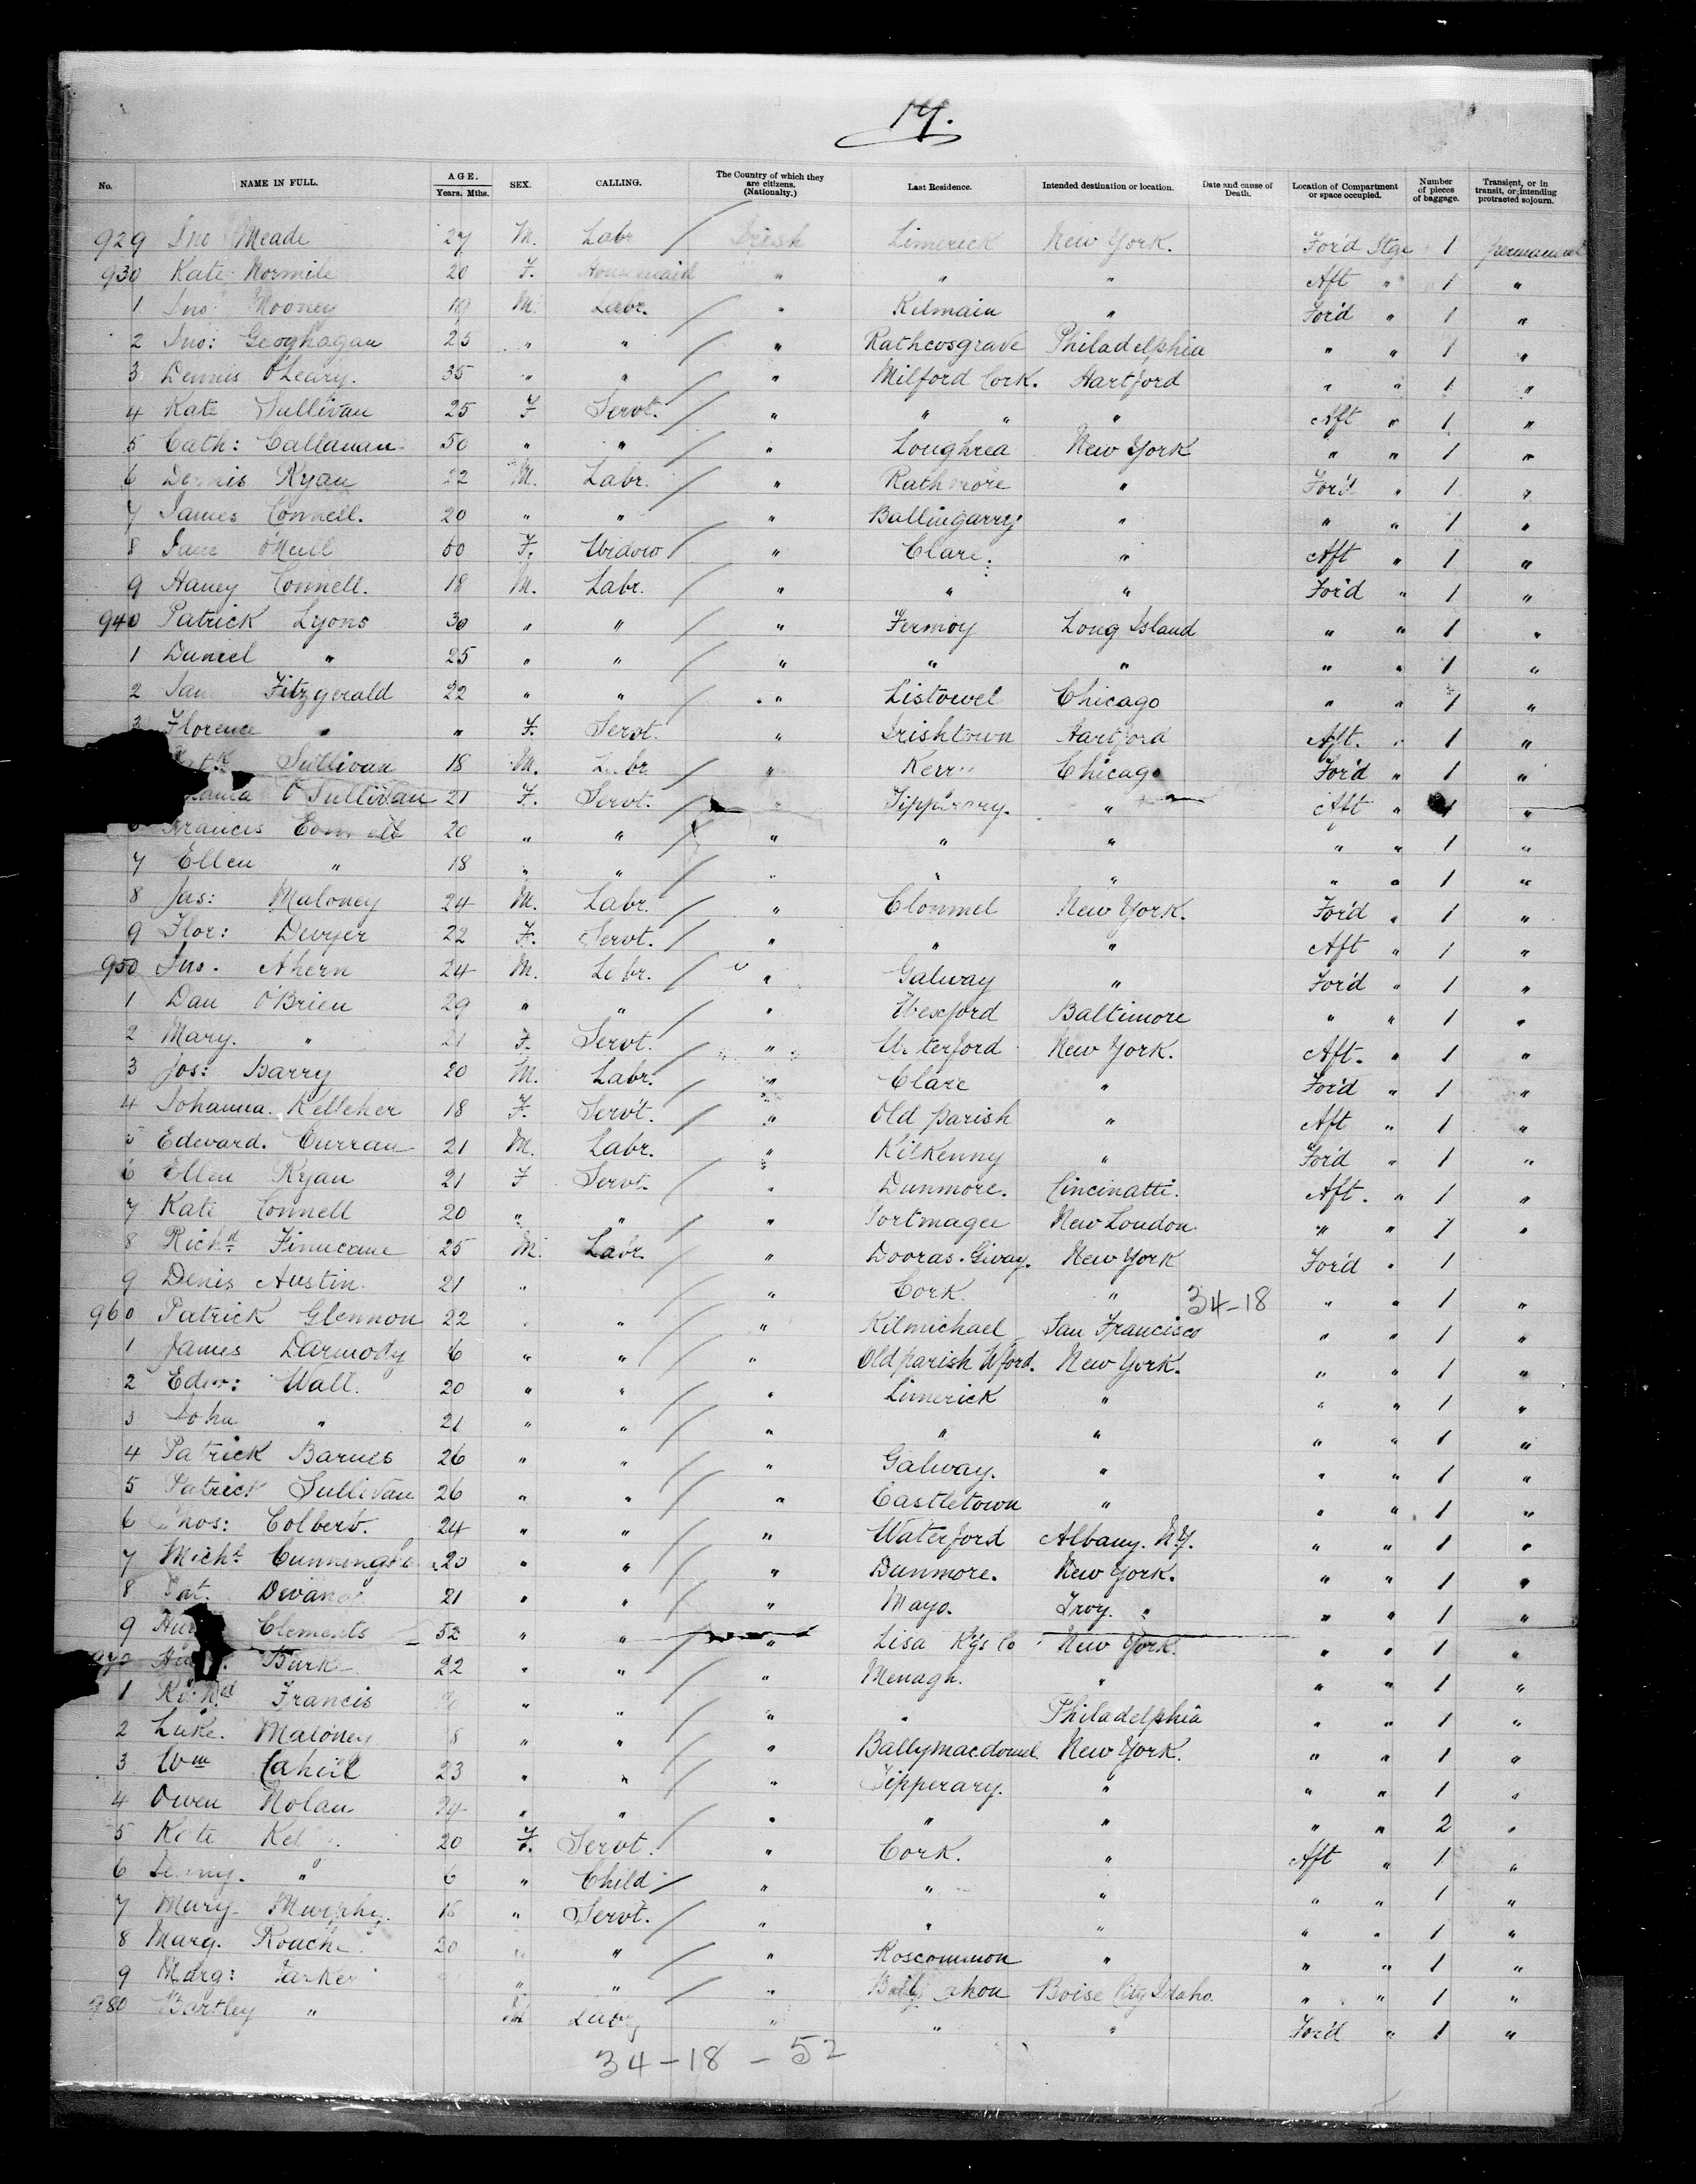 17.
No. NAME IN FULL. AGE. Years. Mths. SEX. CALLING. The Country of which they are citizens. (Nationality.) Last Residence. Intended destination or location. Date and cause of Death. Location of Compartment or space occupied. Number of pieces of baggage. Transient, or in transit, or intending protracted sojourn.
929 Jno Meade 27 M. Labr / Irish Limerick New York. For'd Stge 1 permanent
930 Kate Normile 20 F. Housemaid " " " Aft " 1 "
1 Jno: Mooney 19 M. Labr. / " Kilmain " For'd " 1 "
2 Jno: Geoghagan 25 " " / " Rathcosgrave Philadelphia " " 1 "
3 Dennis O'Leary. 35 " " / " Milford Cork. Hartford " " 1 "
4 Kate Sullivan 25 F Servt. / " " " " Aft " 1 "
5 Cath: Callanan 50 " " / " Loughrea New York " " 1 "
6 Dennis Ryan 22 M. Labr. / " Rathmore " For'd " 1 "
7 James Connell. 20 " " / " Ballingarry " " " 1 "
8 Jane O'Neill 60 F. Widow / " Clare. " Aft " 1 "
9 Connell. 18 M. Labr. / " " " For'd " 1 "
940 Patrick Lyons 30 " " / " Fermoy Long Island " " 1 "
1 Daniel " 25 " " / " " " " " 1 "
2 Fitzgerald 22 " " / " Listowel Chicago " " 1 "
3 Florence " " F. Servt. " Irishtown Hartford Aft. " 1 "
Sullivan 18 M. Labr / " Kerr Chicago For'd " 1 "
O'Sullivan 21 F. Servt. " Tipperary. " Aft " 1 "
Francis 20 " " / " " " " " 1 "
7 Ellen " 18 " " / " " " " " 1 "
8 Jas: Maloney 24 M. Labr. / " Clonmel New York. For'd " 1 "
9 Flor: Dwyer 22 F. Servt. / " " " Aft " 1 "
950 Jno. Ahern 24 M. Labr. / " Galway " For'd " 1 "
1 Dan O'Brien 29 " " / " Wexford Baltimore " " 1 "
2 Mary. " 21 F. Servt. / " Waterford New York. Aft. " 1 "
3 Jos: Barry 20 M. Labr. / " Clare " For'd " 1 "
4 Johanna. Kelleher 18 F. Servt. / " Old parish " Aft " 1 "
5 Edward. Curran 21 M. Labr. / " Kilkenny " For'd " 1 "
6 Ellen Ryan 21 F Servt. / " Dunmore. Cincinatti. Aft. " 1 "
7 Kate Connell 20 " " / " Portmagee New London " " 1 "
8 Richd Finucane 25 M. Labr. / " Dooras. Gway. New York For'd " 1
9 Denis Austin. 21 " / " Cork. " 34-18 " " 1 "
960 Patrick Glennon 22 " " / " Kilmichael San Francisco " " 1 "
1 James Darmody 6 " " / " Old parish Wford. New York. " " 1 "
2 Edw: Wall. 20 " " / " Limerick " " " 1 "
3 John " 21 " " / " " " " " 1 "
4 Patrick Barnes 26 " " / " Galway. " " " 1 "
5 Patrick Sullivan 26 " " / " Castletown " " " 1 "
6 Thos: Colbert. 24 " " / " Waterford Albany. N.Y. " " 1 "
7 Michl 20 " " / " Dunmore. New York. " " 1 "
8 Pat. 21 " " / " Mayo. Troy. " " " 1 "
9 Clements 52 " " " Lisa Kgs Co New York. " " 1 "
970 Burk 22 " " / " Menagh. " " " 1 "
1 Francis " " / " " Philadelphia " " 1 "
2 Luke. Maloney 8 " " / " Ballymacdowel New York. " " 1 "
3 Wm Cahill 23 " " / " Tipperary. " " " 1 "
4 Owen Nolan 24 " " / " " " " " 2 "
5 Kate 20 F. Servt. / " Cork. " Aft " 1 "
6 " 6 " Child / " " " " " 1 "
7 Mary Murphy. 18 " Servt. / " " " " " 1 "
8 Marg. Roache. 20 " " / " Roscommon " " " 1 "
9 Marg: Parker " " / " Boise City Idaho. " " 1 "
980 Bartley " M Labr " " " For'd " 1 "
34-18-52